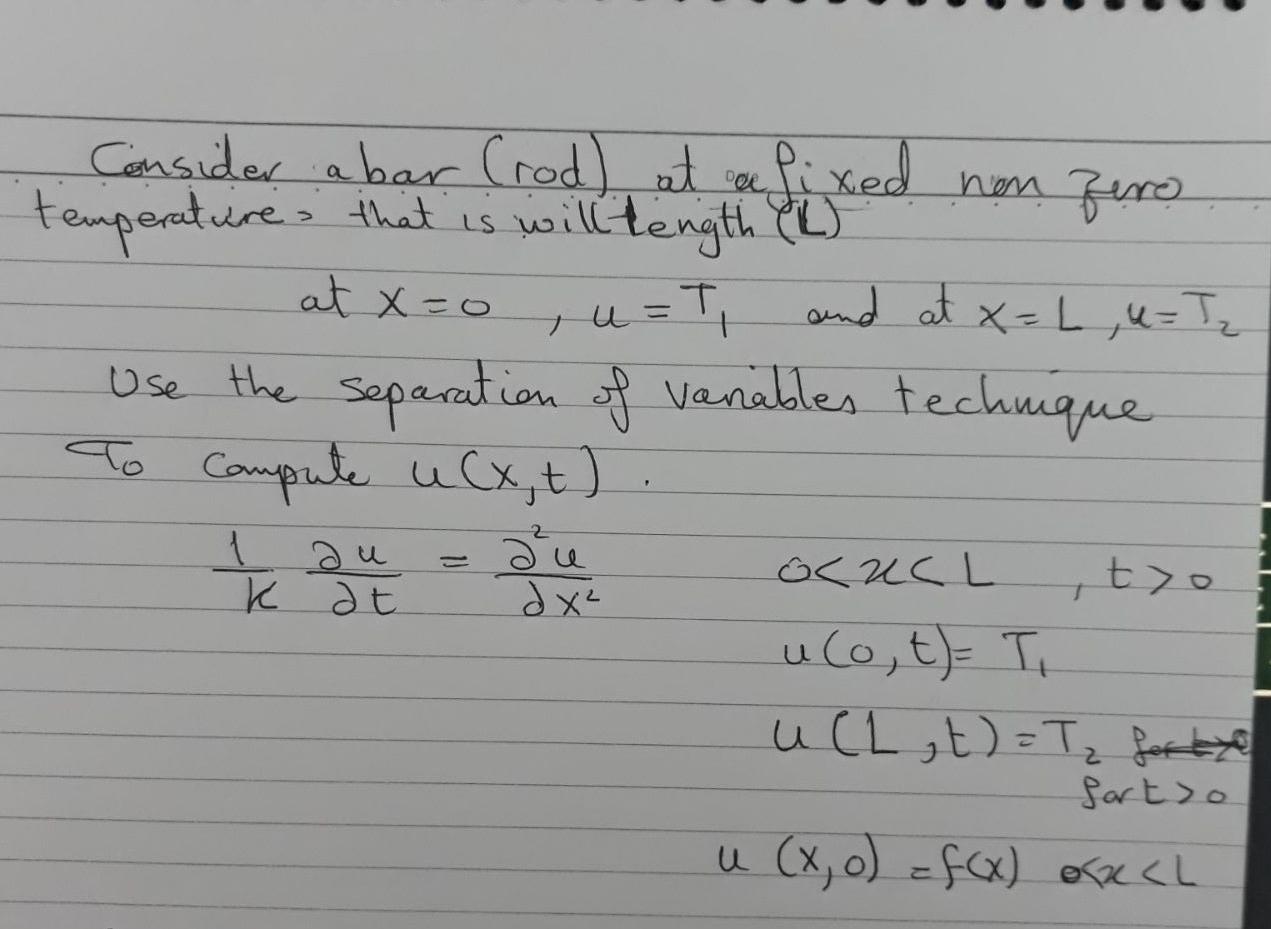 Consider a bar (rod) at a fixed non zero
temperature, that is will length (L)
at x = 0 , u = T₁ and at x = L , u = T₂
Use the separation of variables technique
To compute u(x,t) .
1/K ∂u/∂t = ∂²u/∂x² 0 < x < L , t > 0
u(0,t) = T₁
u(L,t) = T₂
for t > 0
u (x,0) = f(x) 0 < x < L